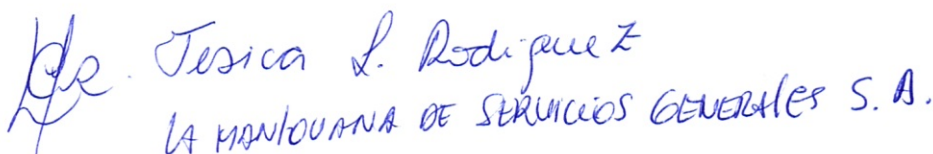 Jesica L. Rodiguez
LA MANTOVANA DE SERVICIOS GENERALES S. A.